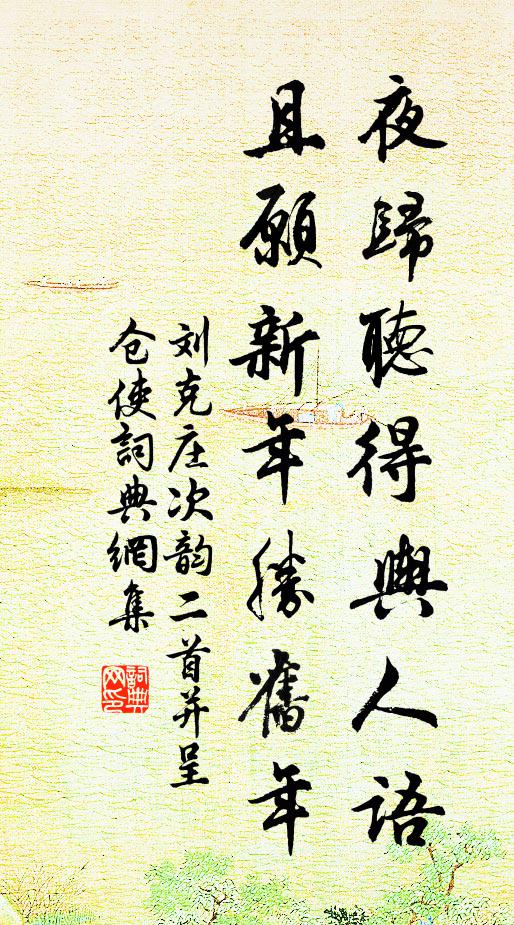 夜歸聽得輿人語
且願新年勝舊年
刘克庄次韵二首并呈
仓使詞典網集
詞典网印